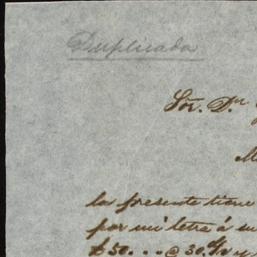 Duplicada
Sor. Dn
M
la presente tiene
por mi letra á su
£50... @ 30 d/v y